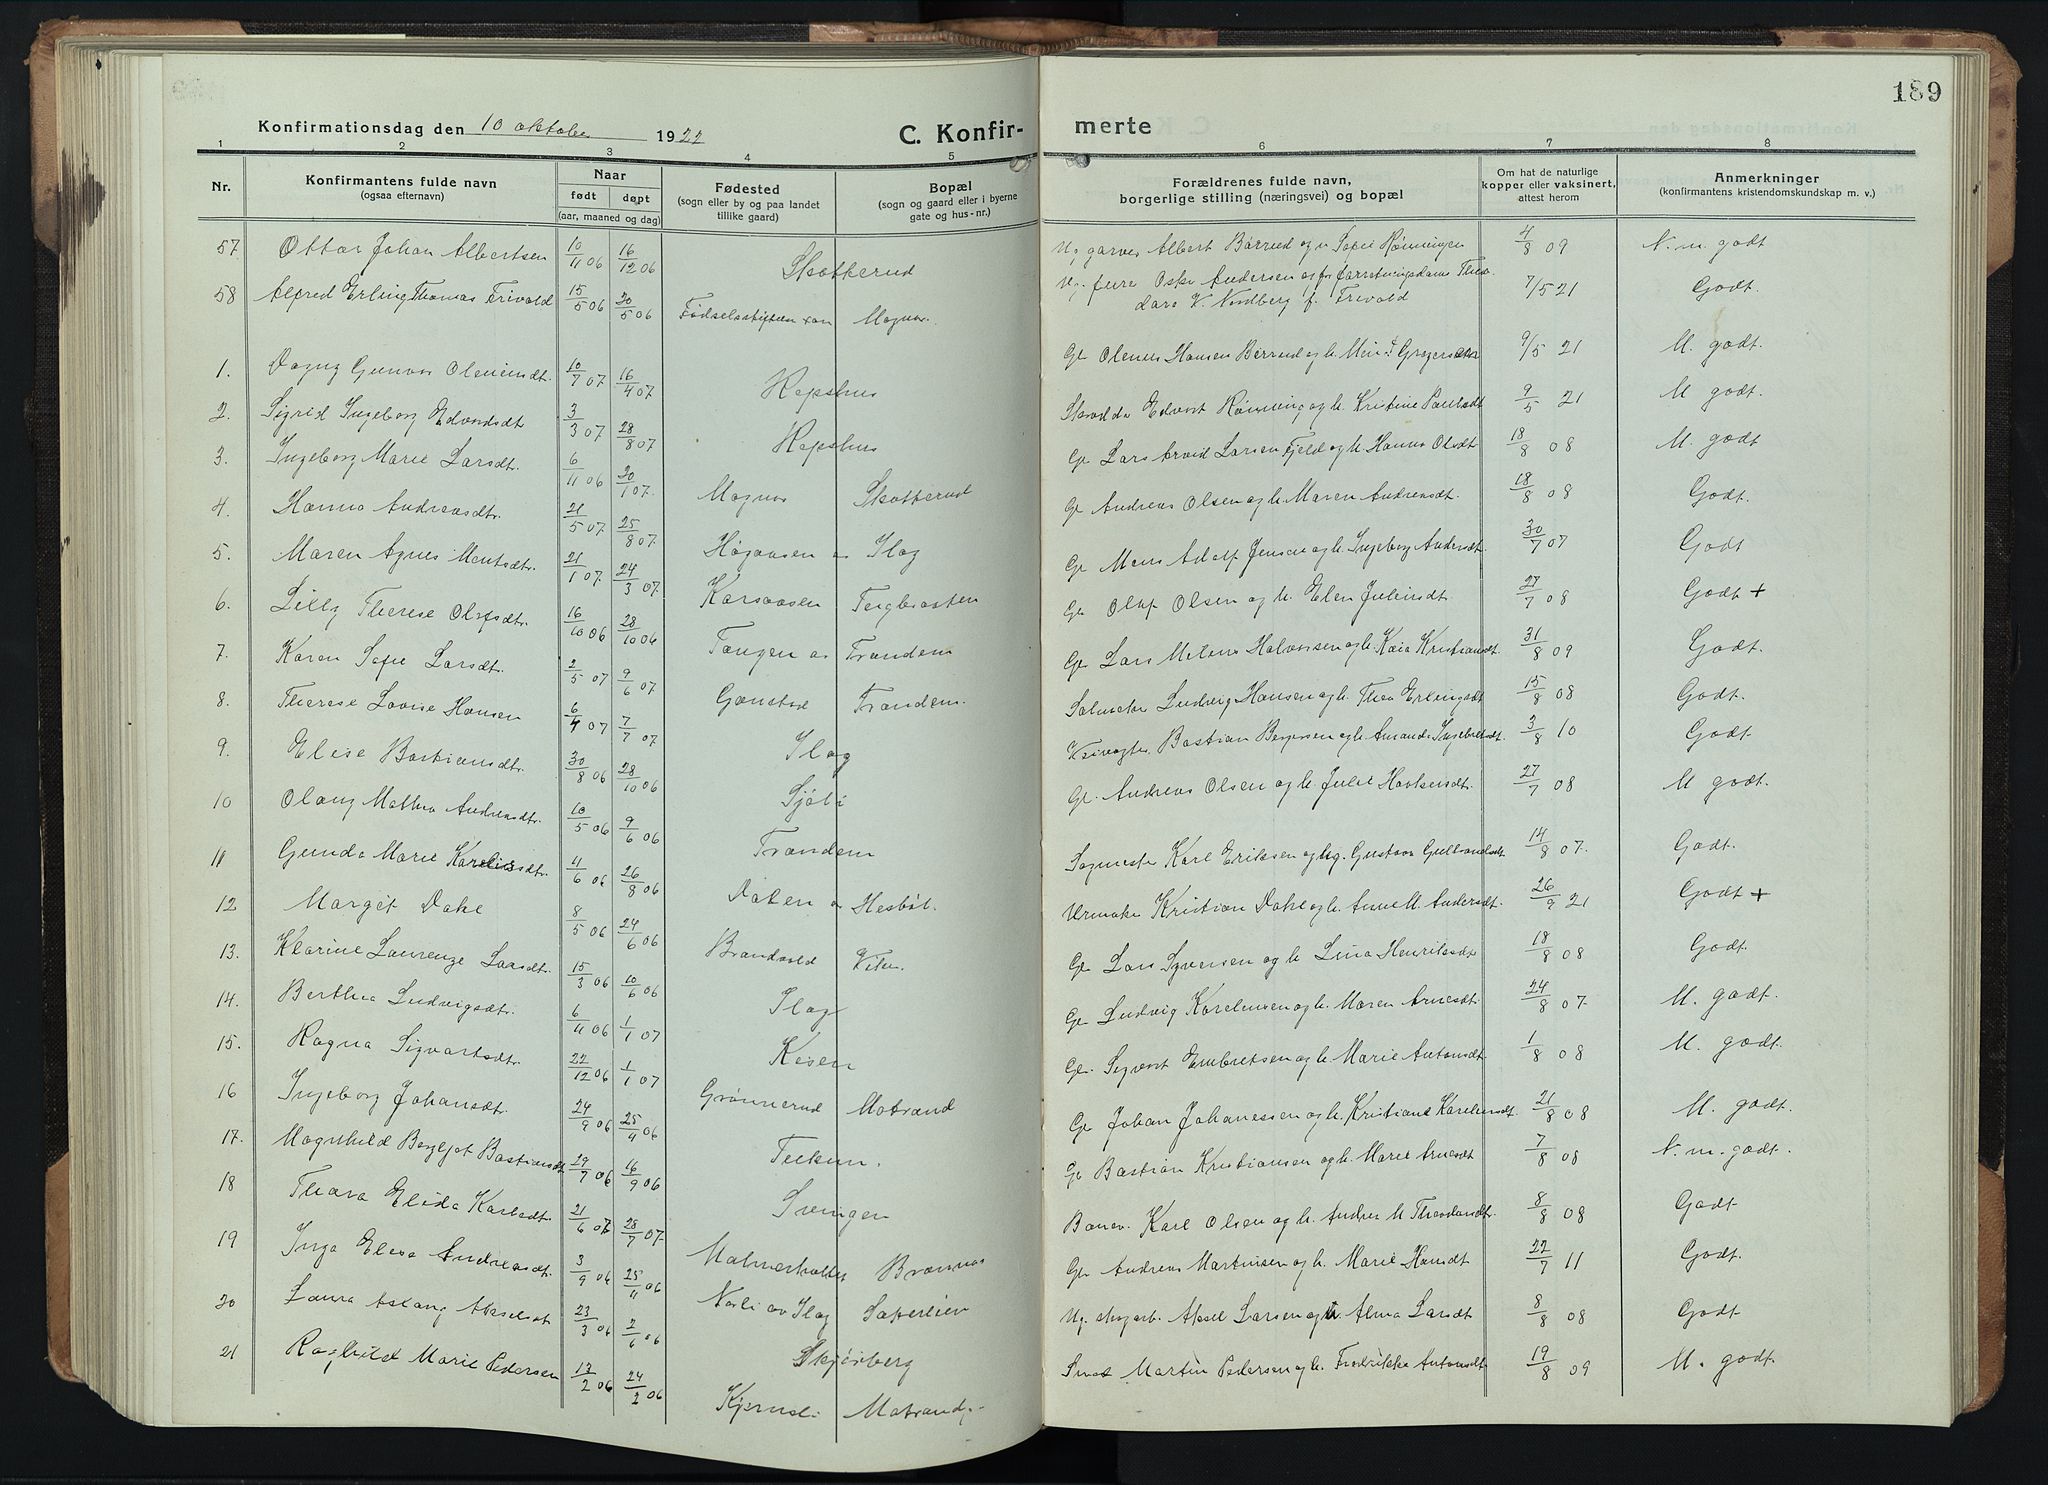 189
Konfirmationsdag den 10 oktober 1922 C. Konfir- merte
1 2 3 4 5 6 7 8
Nr. Konfirmantens fulde navn (ogsaa efternavn) Naar født døpt (aar, maaned og dag) Fødested (sogn eller by og paa landet tillike gaard) Bopæl (sogn og gaard eller i byerne gate og hus-nr.) Forældrenes fulde navn, borgerlige stilling (næringsvei) og bopæl Om hat de naturlige kopper eller vaksinert, attest herom Anmerkninger (konfirmantens kristendomskundskap m. v.)
57 Ottar Johan Albertsen 10/11 06 16/12 06 Skotterud Ug. garver Albert Børrud og Sofie Rønningen 4/8 09 N. m. godt
58 Alfred Erling Thomas Frivold 15/5 06 20/5 06 Fødselsstiftelsen Magnor. Ug. Andersen V. Nordberg f. Frivold 7/5 21 Godt.
1. Dagny Gunvor 10/7 07 16/4 07 Repshus Ga Olenius Hansen Børrud og h. 9/5 21 M. godt.
2. Sigrid Ingeborg Edvardsdt 3/3 07 28/8 07 Repshus Edvart Rønning og h. Kristine Paulsdt 9/5 21 M godt.
3. Ingeborg Marie Larsdt. 6/11 06 20/1 07. Magnor Skotterud Ga Lars Arvid Larsen Fjeld og h. Hanna Olsdt 18/8 08 M. godt
4. Hanna Andreasdtr. 21/5 07 25/8 07. Høgaasen Ilag Ga Andreas Olsen og h. Maren Andreasdt. 18/8 08 Godt.
5. Maren Agnes 21/1 07. 24/3 07. Karsaasen Ga Adolf Jensen og h. Ingeborg Andersdt. 30/7 07 Godt
6. Lilly Therese Olafsdtr. 16/10 06 28/10 06 Tangen Trandem Ga Olaf Olsen og h. Elen Juliusdt. 27/7 08 Godt +
7. Karen Sofie Larsdt. 2/5 07 9/6 07 Trandem. Ga Lars Halvorsen og h. Kaia Kristiansdt. 31/8 09 Godt.
8. Therese Lovise Hansen 6/4 07 7/7 07 Ilag Ludvig Hansen og h. Thea Erlingsdt 15/8 08 Godt.
9. Elise Bastiansdtr. 30/8 06 28/10 06 Sjøli Bastian og h. Amanda Ingebretsdt. 3/8 10 Godt.
10 Olaug Mathea Andreasdtr. 10/5 06 9/6 06 Trandem Ga. Andreas Olsen og h. Julie 27/7 08 M godt.
11 Gunda Marie Karlsdtr. 11/6 06 26/8 06 Karl Eriksen og hg. Gustava Gulbrandsdt 14/8 07. Godt.
12 Margit Dahl 8/5 06 24/6 06 Brandvold Kristian Dahl og h. Anne M. Andersdt. 26/9 21 Godt +
13. Klarine Laurenze Larsdt. 15/3 06 10/6 06 Ilag Ga Lars Syversen og h. Lina Henriksdt 18/8 08 Godt.
14. Berthea Ludvigsdtr. 6/11 06 1/1 07 Ga Ludvig Karelinsen og h. Maren Arnesdt. 24/8 07. M. godt.
15. Ragna Sigvartsdtr. 22/12 06 1/1 07 Grønnerud Matrand Ga. Sigvart Embretsen og h. Marie Antonsdt 1/8 08 M. godt.
16 Ingeborg Johansdt. 24/9 06 25/9 06 Ga Johan Johanessen og h. Kristiane Karelinsdt. 21/8 08 M. godt.
17. Magnhild Bergljot Bastiansdt 29/7 06 16/9 06 Svingen Ga Bastian Kristiansen og h. Marie Arnesdt 7/8 08 N. m. godt.
18 Thora Elida Karlsdt. 21/6 07. 28/7 07. Banev. Karl Olsen og h. Theodorsdt. 8/8 08 Godt
19 Inga Elisa Andreasdt. 3/9 06 25/11 06 Brænnes Ga Andreas Martinsen og h. Marie Hansdt 22/7 11 Godt.
20 Laura Aslaug Akselsdt 23/3 06 2/6 06 Skjøsberg Ug. skogarb. Aksel Larsen og Alma Larsdt 8/8 08 Godt
21 Ragnhild Marie Pedersen 17/2 06 24/2 06 Kjernsli Matrand. Smed Martin Pedersen og h. Fredrikke Antonsdt 19/8 09 M. godt.